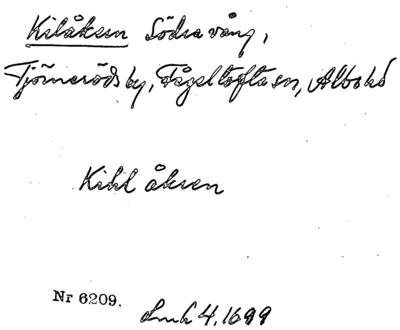 Kilåken Södra vång,
Tjörneröds by, Fågeltofta sn, Albo hd
Kihl åkren
Nr 6209.
Lmh 4. 1699